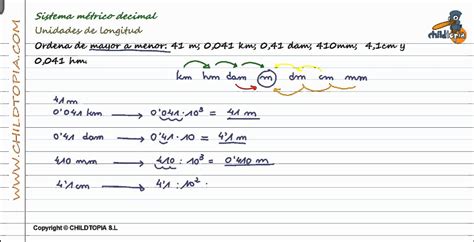 Sistema métrico decimal
Unidades de longitud
Ordena de mayor a menor: 41 m; 0,041 km; 0,41 dam; 410mm; 4,1cm y
0,041 hm.
childtopia
km hm dam m dm cm mm
41 m
0'041 km → 0'041 · 10³ = 41 m
0'41 dam → 0'41 · 10 = 4'1 m
410 mm → 410 : 10³ = 0'410 m
4'1 cm → 4'1 : 10² ·
WWW.CHILDTOPIA.COM
Copyright © CHILDTOPIA S.L